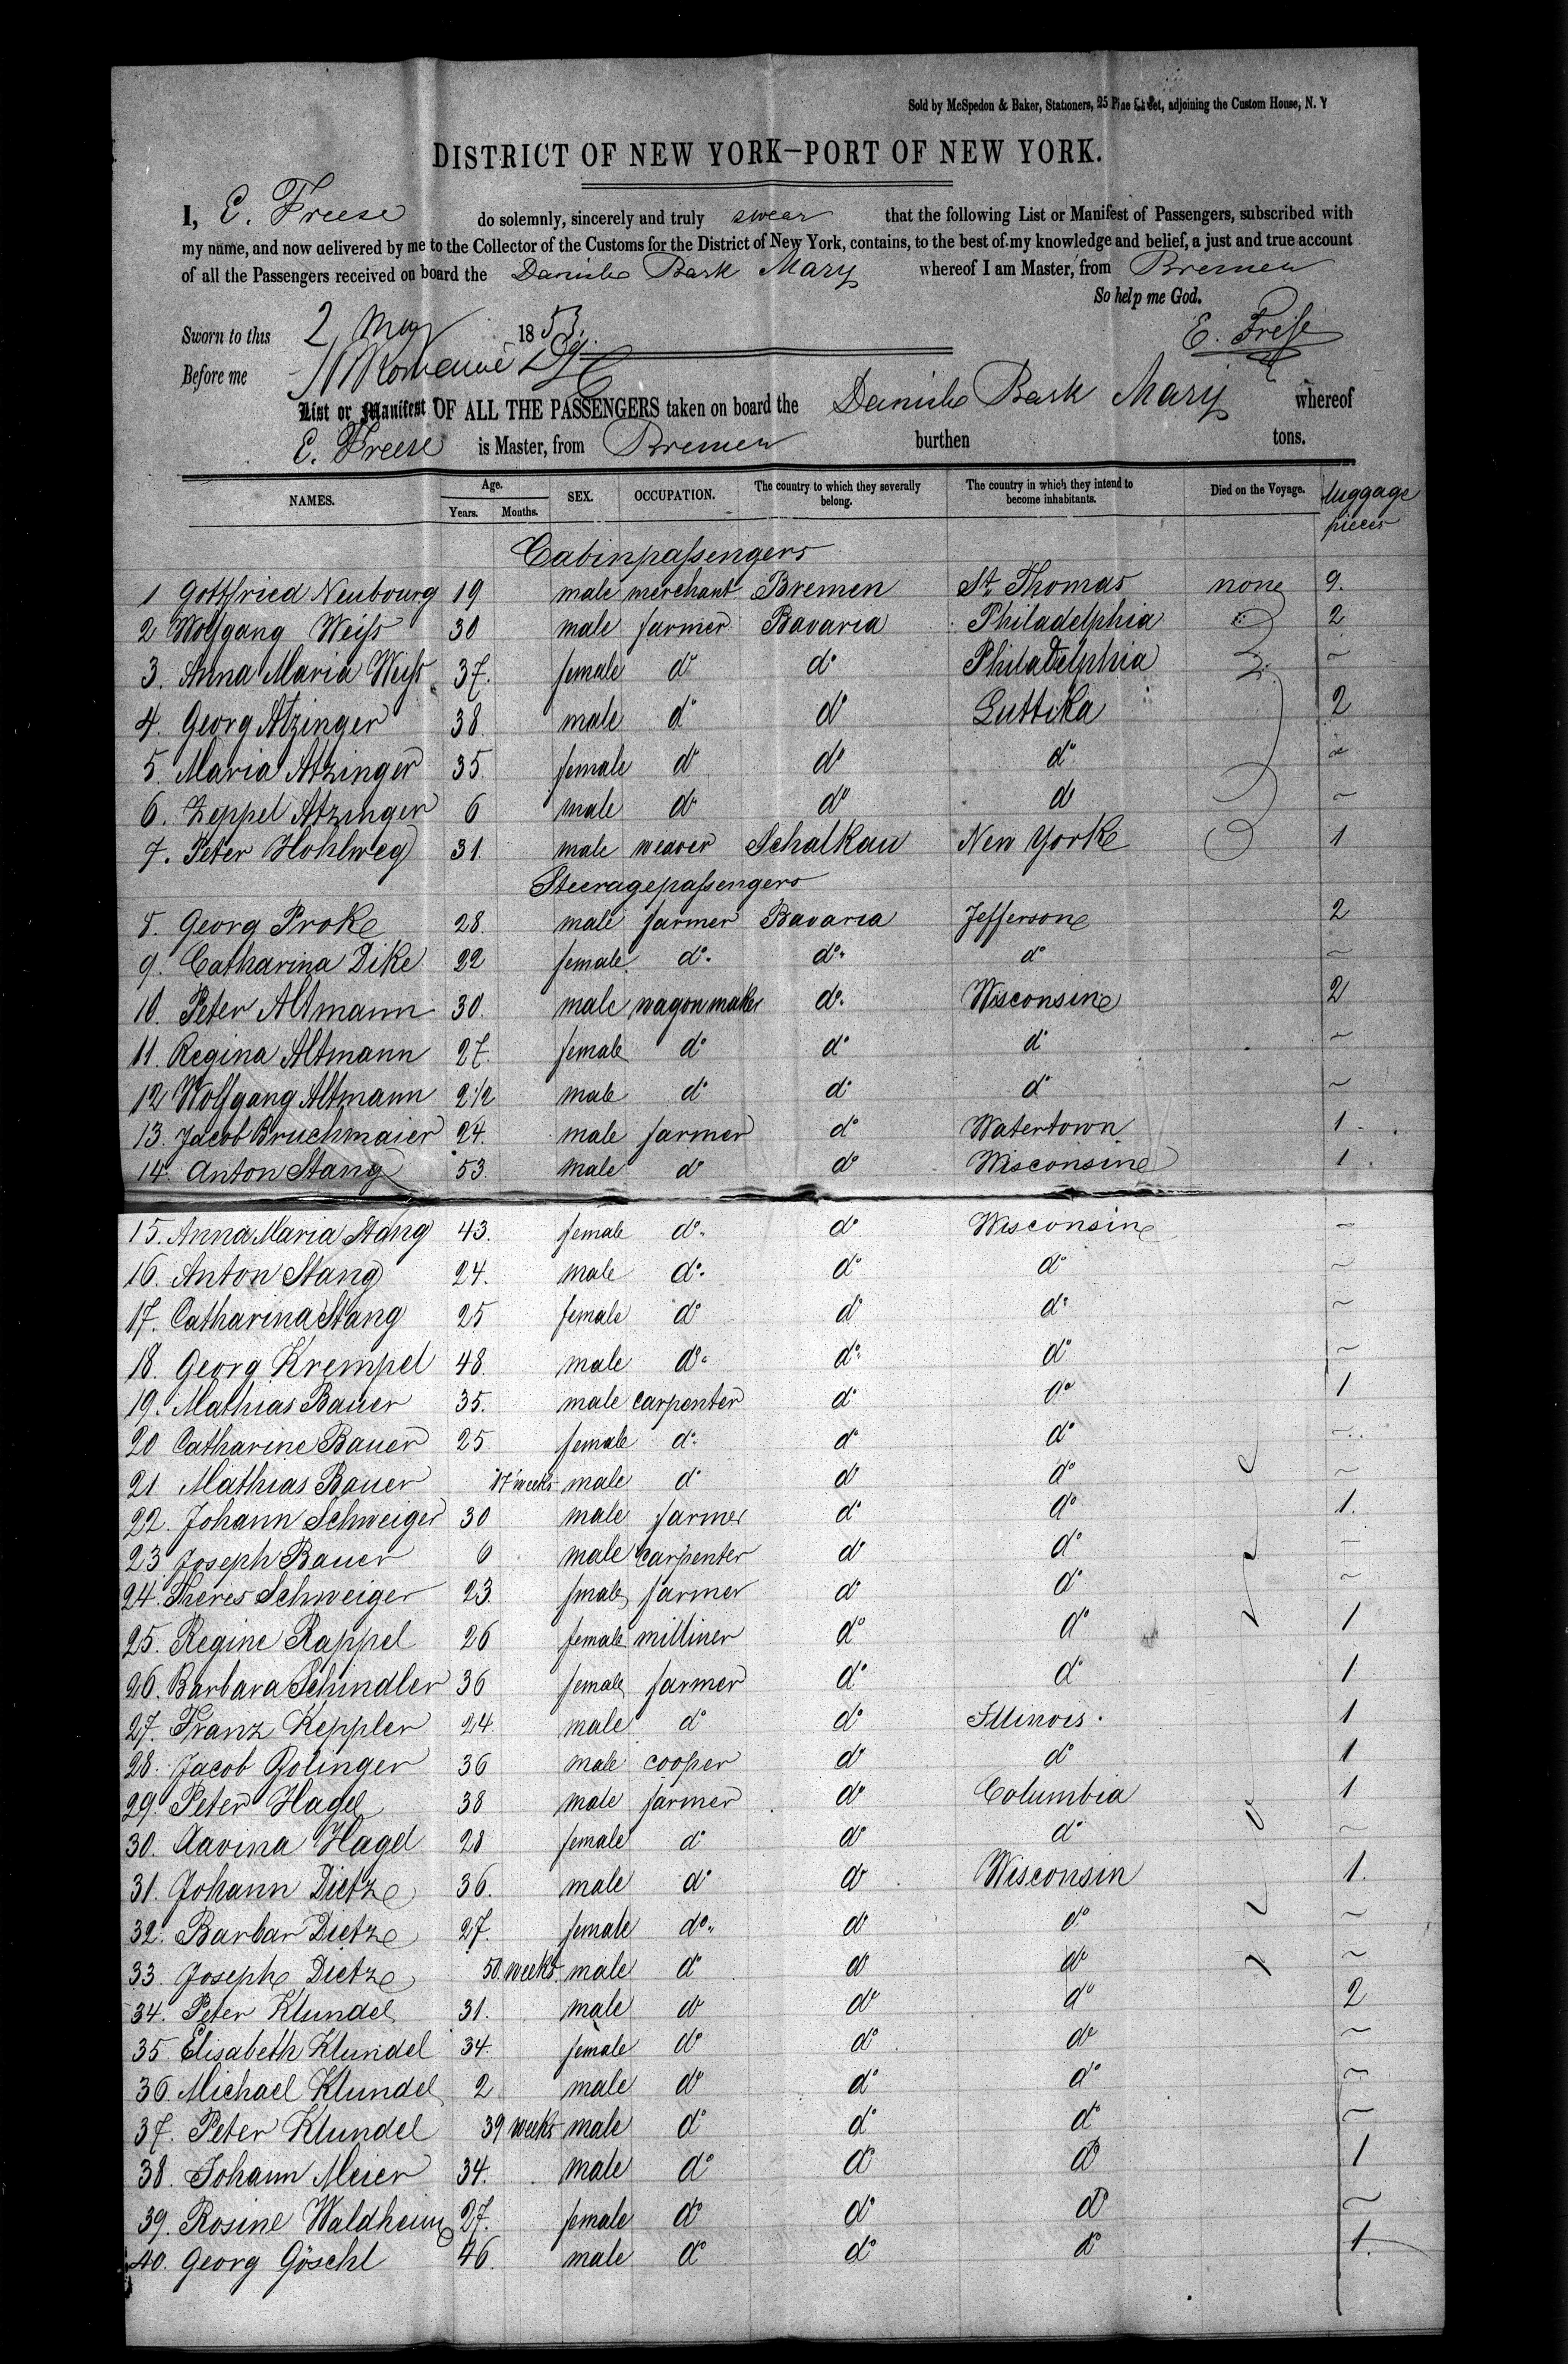 Sold by McSpedon & Baker, Stationers, 25 Pine Street, adjoining the Custom House, N. Y
DISTRICT OF NEW YORK—PORT OF NEW YORK.
I, E. Freese do solemnly, sincerely and truly swear that the following List or Manifest of Passengers, subscribed with
my name, and now delivered by me to the Collector of the Customs for the District of New York, contains, to the best of my knowledge and belief, a just and true account
of all the Passengers received on board the Danish Bark Mary whereof I am Master, from Bremen
So help me God.
Sworn to this 2 May 1853.
E. Freese
Before me
List or Manifest OF ALL THE PASSENGERS taken on board the Danish Bark Mary whereof
E. Freese is Master, from Bremen burthen tons.
NAMES. Age. Years. Months. SEX. OCCUPATION. The country to which they severally belong. The country in which they intend to become inhabitants. Died on the Voyage. luggage pieces
Cabinpassengers
1 Gottfried Neubourg 19 male merchant Bremen St. Thomas none 9.
2 Wolfgang Weiss 30 male farmer Bavaria Philadelphia 2
3. Anna Maria Weiss 37. female do do Philadelphia ~
4. Georg Atzinger 38 male do do Luttika 2
5. Maria Atzinger 35 female do do do ~
6. Zeppel Atzinger 6 male do do do ~
7. Peter Hohlweg 31. male weaver Schalkau New Yorke 1
Steeragepassengers
8. Georg Proke 28. male farmer Bavaria Jeffersone 2
9. Catharina Dike 22 female do. do. do ~
10. Peter Altmann 30. male wagonmaker do. Wisconsine 2
11. Regina Altmann 27. female do do do ~
12 Wolfgang Altmann 2 1/2 male do do do ~
13. Jacob Bruchmaier 24. male farmer do Watertown 1
14. Anton Stang 53. male do do Wisconsine 1.
15. Anna Maria Stang 43. female do. do Wisconsine ~
16. Anton Stang 24. male do. do do ~
17. Catharina Stang 25 female do do do ~
18. Georg Krempel 48. male do. do. do ~
19. Mathias Bauer 35. male carpenter do do 1
20 Catharine Bauer 25 female do. do do ~
21 Mathias Bauer 17 weeks male do do do ~
22. Johann Schweiger 30 male farmer do do 1.
23 Joseph Bauer 6 male carpenter do do ~
24. Theres Schweiger 23. female farmer do do ~
25. Regine Rappel 26 female milliner do do 1
26. Barbara Schindler 36 female farmer do do 1
27. Franz Keppler 24. male do do Illinois. 1
28. Jacob Zolinger 36 male cooper do do 1
29. Peter Hagel 38 male farmer do Columbia 1
30. Xavina Hagel 28 female do do do ~
31. Johann Dietze 36. male do do Wisconsin 1.
32. Barbar Dietze 27. female do. do do ~
33. Joseph Dietze 50. weeks male do do do ~
34. Peter Klundel 31. male do do do 2
35. Elisabeth Klundel 34. female do do do ~
36. Michael Klundel 2 male do do do ~
37. Peter Klundel 39 weeks male do do do ~
38. Johann Meier 34. male do do do 1
39. Rosine Waldheim 27. female do do do ~
40. Georg Göschl 46. male do do do 1.